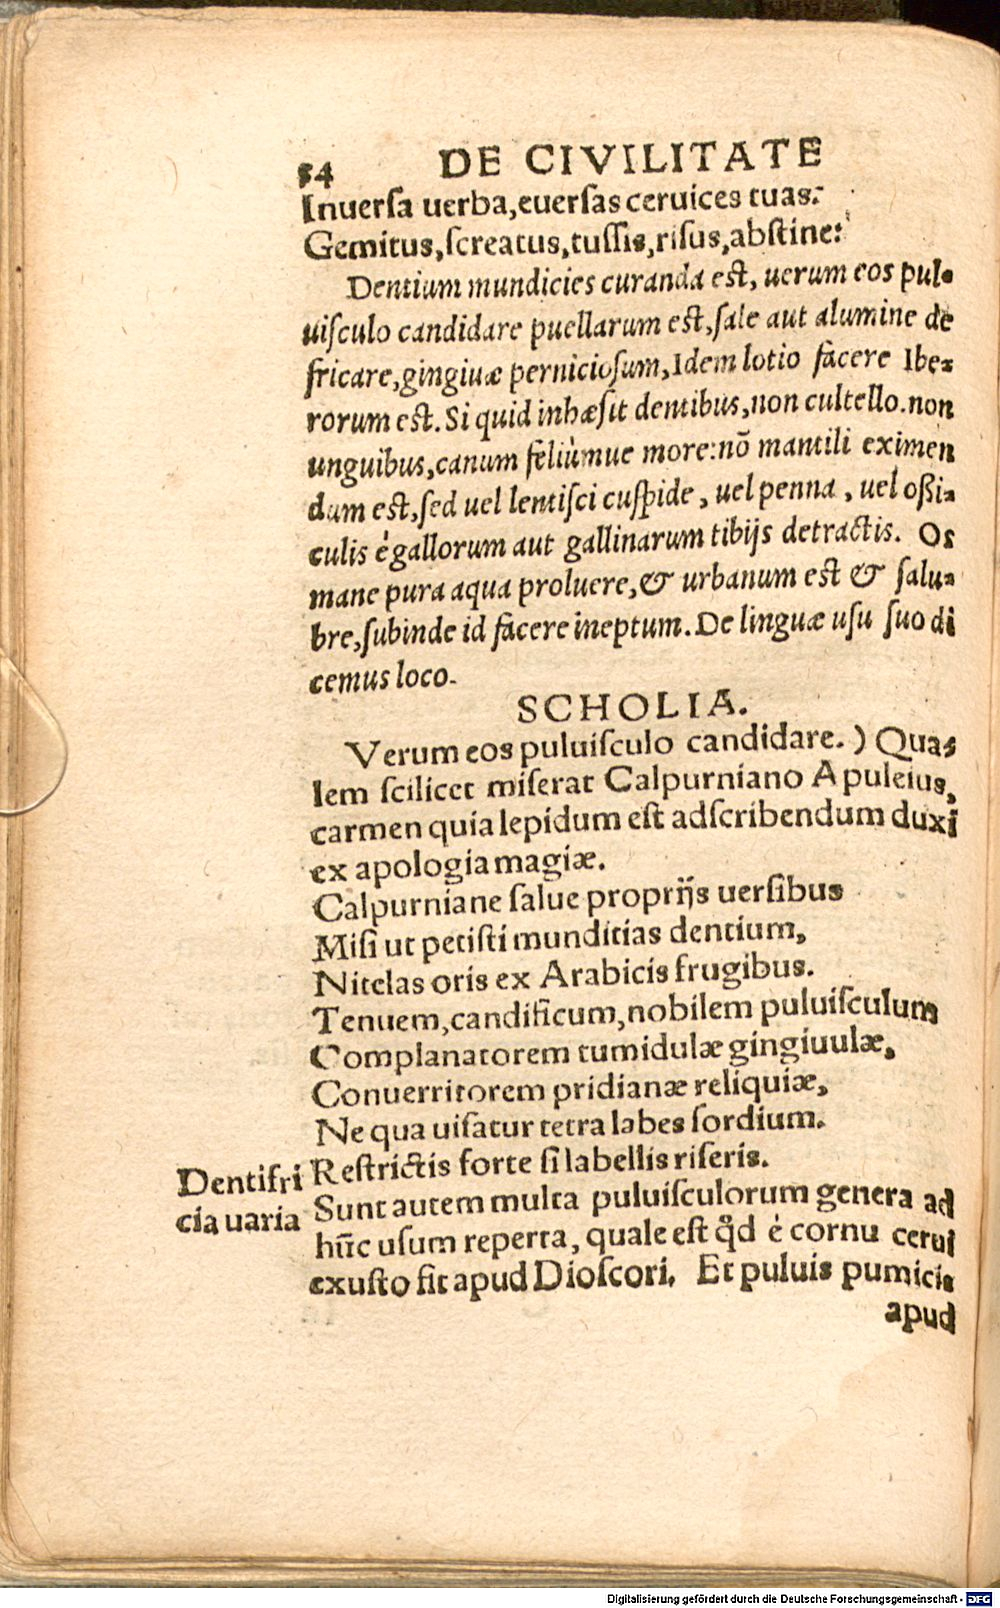 54 DE CIVILITATE
Inuersa uerba,euersas ceruices tuas:
Gemitus,screatus,tussis,risus,abstine:
Dentium mundicies curanda est, uerum eos pul-
uisculo candidare puellarum est,sale aut alumine de
fricare,gingiuæ perniciosum,Idem lotio facere Ibe-
rorum est. Si quid inhæsit dentibus,non cultello.non
unguibus,canum feliùmue more:nō mantili eximen
dum est,sed uel lentisci cuspide, uel penna, uel oßi-
culis è gallorum aut gallinarum tibijs detractis. Os
mane pura aqua proluere,& urbanum est & salu-
bre,subinde id facere ineptum. De linguæ usu suo di
cemus loco.
SCHOLIA.
Verum eos puluisculo candidare.) Qua-
lem scilicet miserat Calpurniano Apuleius,
carmen quia lepidum est adscribendum duxi
ex apologia magiæ.
Calpurniane salue proprijs uersibus
Misi ut petisti munditias dentium,
Nitelas oris ex Arabicis frugibus.
Tenuem,candificum,nobilem puluisculum
Complanatorem tumidulæ gingiuulæ,
Conuerritorem pridianæ reliquiæ,
Ne qua uisatur tetra labes sordium.
Restrictis forte si labellis riseris.
Dentifri
cia uaria
Sunt autem multa puluisculorum genera ad
hūc usum reperta, quale est qd̊ è cornu cerui
exusto fit apud Dioscori. Et puluis pumicis
apud
Digitalisierung gefördert durch die Deutsche Forschungsgemeinschaft - DFG